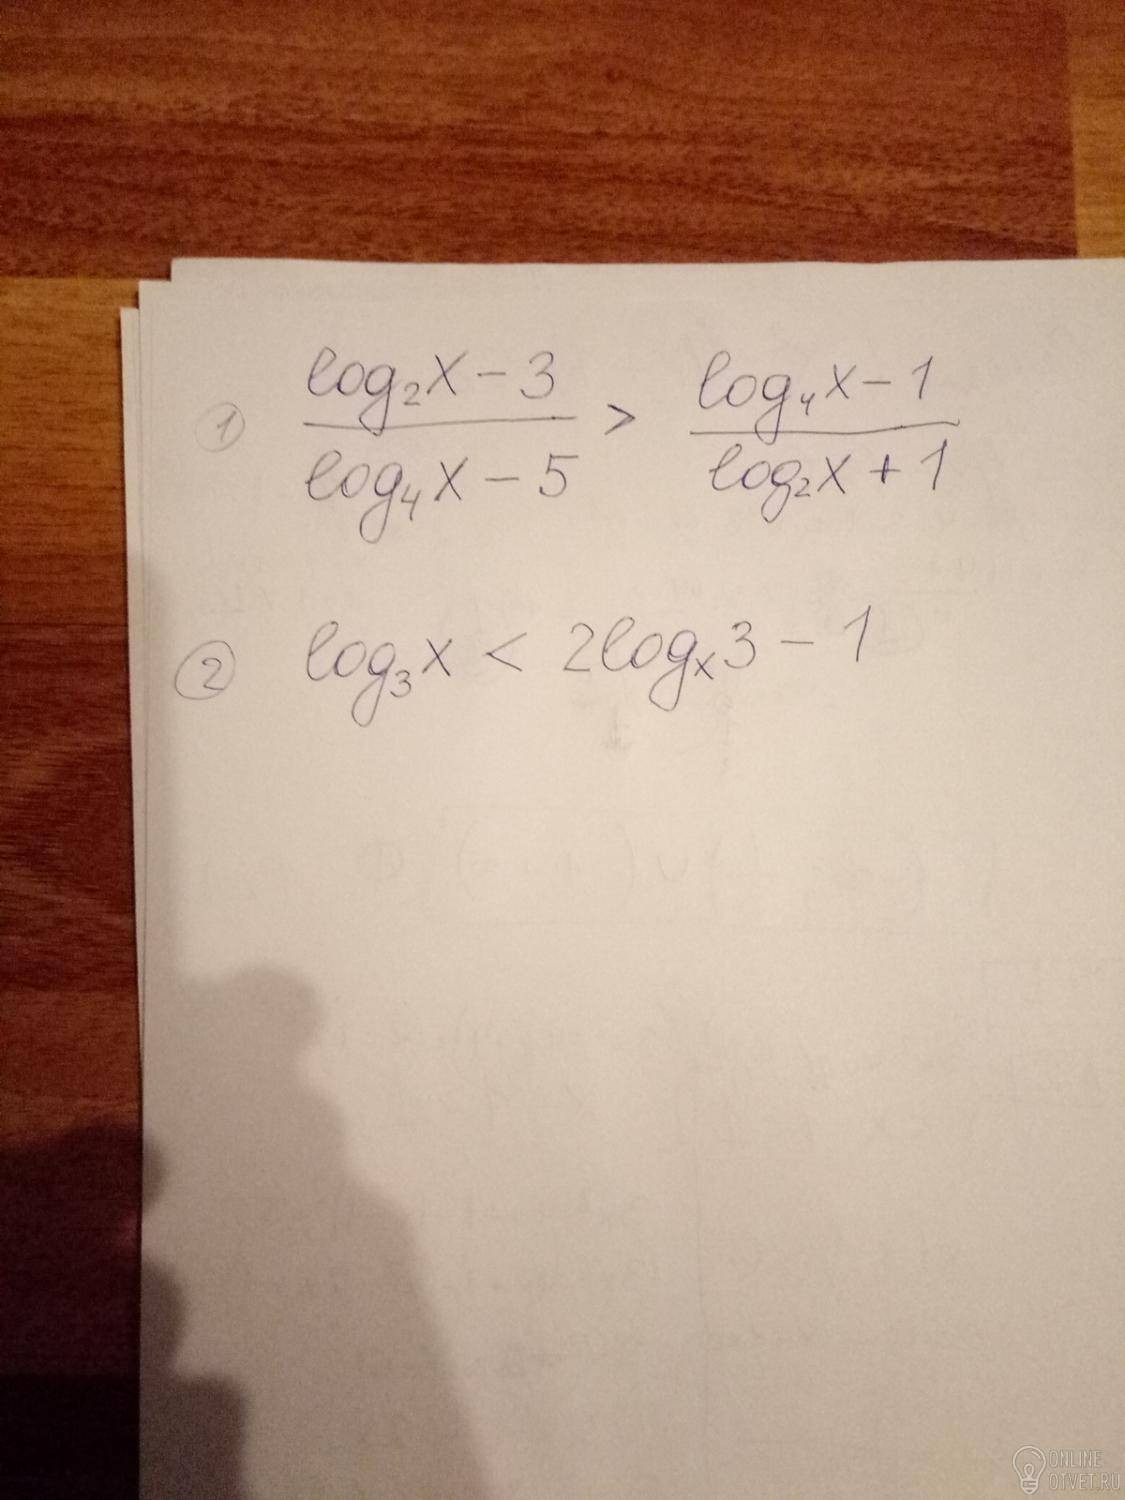 ① log₂x − 3 / log₄x − 5 > log₄x − 1 / log₂x + 1
② log₃x < 2logₓ3 − 1
ONLINE
OTVET.RU